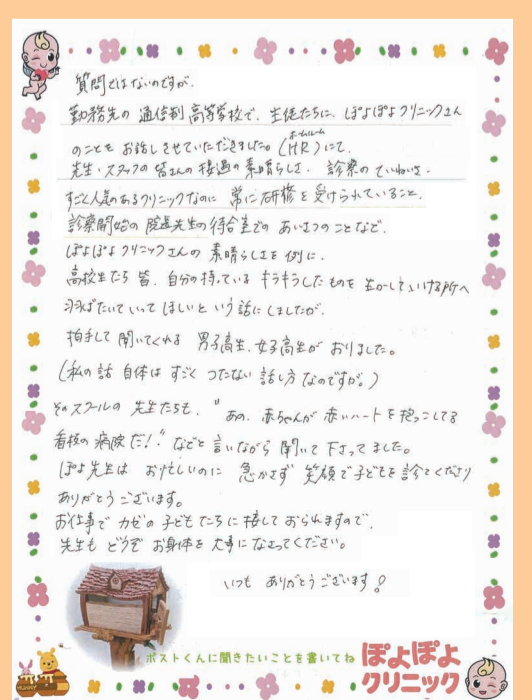 質問ではないのですが、
勤務先の通信制高等学校で、生徒たちに、ぽよぽよクリニックさん
のことをお話しさせていただきました。(HR)にて、
ホームルーム
先生・スタッフの皆さんの接遇の素晴らしさ、診察のていねいさ、
すごく人気のあるクリニックなのに常に研修を受けられていること、
診察開始の院長先生の待合室でのあいさつのことなど、
ぽよぽよクリニックさんの素晴らしさを例に、
高校生たち皆、自分の持っているキラキラしたものを生かしていける所へ
羽ばたいていってほしいという話にしましたが、
拍手して聞いてくれる男子高生、女子高生がおりました。
(私の話自体はすごくつたない話し方なのですが。)
そのスクールの先生たちも、"あの、赤ちゃんが赤いハートを抱っこしてる
看板の病院だ!"などと言いながら聞いて下さってました。
ぽよ先生はお忙しいのに急かさず笑顔で子どもを診てくださり
ありがとうございます。
お仕事でカゼの子どもたちに接しておられますので、
先生もどうぞお身体を大事になさってください。
いつもありがとうございます!
ポストくんに聞きたいことを書いてね
ぽよぽよ
クリニック
HUNNY